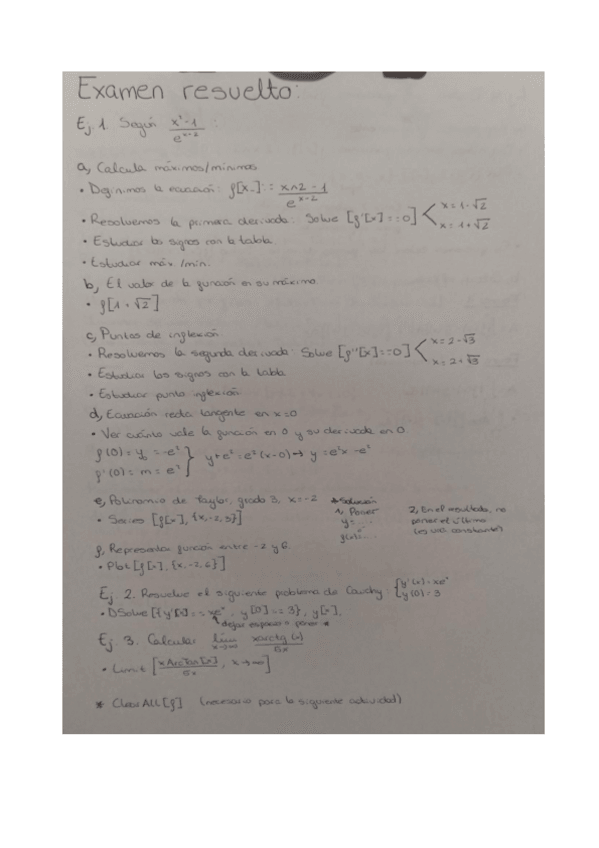 Examen resuelto:
Ej. 1. Según (x²-1)/(e^(x-2)) :
a) Calcula máximos/mínimos
• Definimos la ecuación: f[x_] := (x^2 - 1)/(e^(x-2))
• Resolvemos la primera derivada: Solve [f'[x]==0] < x = 1-√2
x = 1+√2
• Estudiar los signos con la tabla.
• Estudiar máx./mín.
b) El valor de la función en su máximo.
• f[1+√2]
c) Puntos de inflexión
• Resolvemos la segunda derivada: Solve [f''[x]==0] < x = 2-√3
x = 2+√3
• Estudiar los signos con la tabla
• Estudiar punto inflexión.
d) Ecuación recta tangente en x=0
• Ver cuánto vale la función en 0 y su derivada en 0
f(0) = y₀ = -e²
f'(0) = m = e² } y+e² = e²(x-0) → y = e²x - e²
e) Polinomio de Taylor, grado 3, x=-2
• Series [f[x], {x,-2,3}]
* Solución
1) Poner
y = ...
2) En el resultado, no
poner el último
(es una constante)
f) Representar función entre -2 y 6.
• Plot [f[x], {x,-2,6}]
Ej 2. Resuelve el siguiente problema de Cauchy: { y'(x) = xeˣ
y(0) = 3
• DSolve [{y'[x] == xeˣ, y[0] == 3}, y[x],
dejar espacio o poner *
Ej. 3. Calcular lim x→∞ (x arctg(x))/(5x)
• Limit [(x ArcTan[x])/(5x), x→∞]
* ClearAll[f] (necesario para la siguiente actividad)